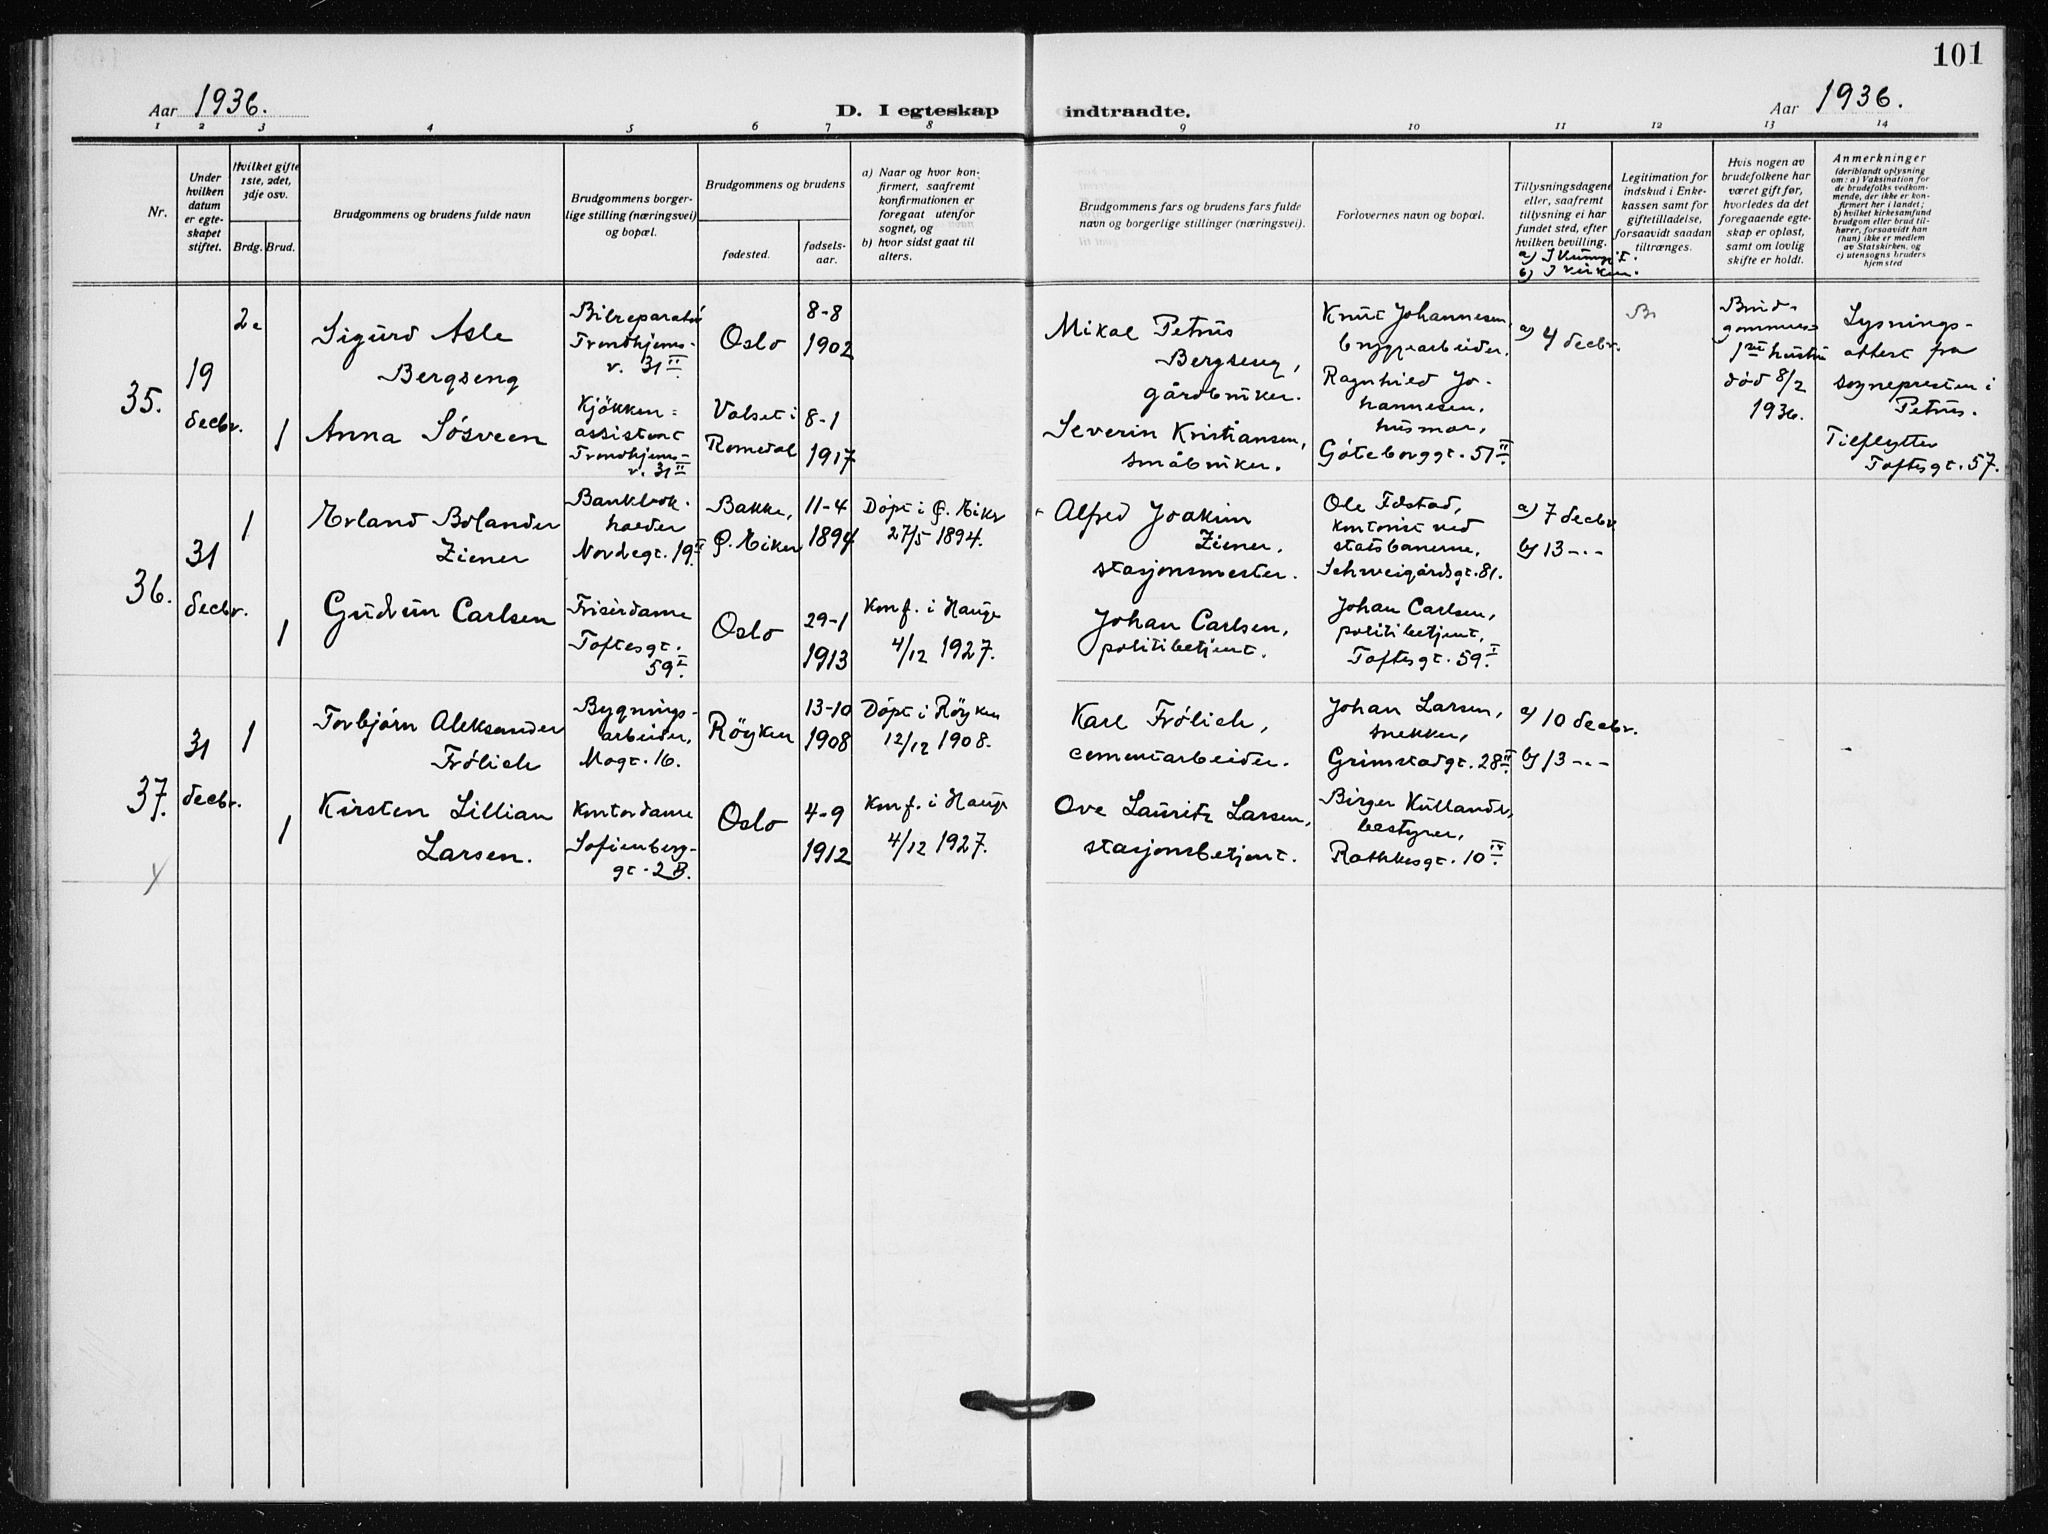 101
Aar 1936.
D. I egteskap indtraadte.
Aar 1936.
1 2 3 4 5 6 7 8 9 10 11 12 13 14
Nr.
Under
hvilken
datum
er egte-
skapet
stiftet.
Hvilket gifte
1ste, 2det,
3dje osv.
Brdg. Brud.
Brudgommens og brudens fulde navn
Brudgommens borger-
lige stilling (næringsvei)
og bopæl.
Brudgommens og brudens
fødested.
fødsels-
aar.
a) Naar og hvor kon-
firmert, saafremt
konfirmationen er
foregaat utenfor
sognet, og
b) hvor sidst gaat til
alters.
Brudgommens fars og brudens fars fulde
navn og borgerlige stillinger (næringsvei).
Forlovernes navn og bopæl.
Tillysningsdagene
eller, saafremt
tillysning ei har
fundet sted, efter
hvilken bevilling.
a)
b) I kirken.
Legitimation for
indskud i Enke-
kassen samt for
giftetilladelse,
forsaavidt saadan
tiltrænges.
Hvis nogen av
brudefolkene har
været gift før,
hvorledes da det
foregaaende egte-
skap er opløst,
samt om lovlig
skifte er holdt.
Anmerkninger
(deriblandt oplysning
om: a) Vaksination for
de brudefolks vedkom-
mende, der ikke er kon-
firmert her i landet;
b) hvilket kirkesamfund
brudgom eller brud til-
hører, forsaavidt han
(hun) ikke er medlem
av Statskirken, og
c) utensogns bruders
hjemsted
35.
19
decbr.
2
Sigurd Asle
Bergseng
Bilreparatør
Trondhjems-
v. 31 II.
Oslo
8-8
1902
Mikal Petrus
Bergseng,
gårdbruker.
Knut Johannesen,
bryggearbeider.
Ragnhild Jo-
hannesen,
husmor,
Göteborggt. 51 II.
a) 4 decbr.
Brud-
gommens
1ste hustru
död 8/2
1936.
Lysnings-
attest fra
sognepresten i
Petrus.
Tilflytter
Toftesgt. 57.
1
Anna Sösveen
Kjökken-
assistent
Trondhjems-
v. 31 II
Valset i
Romedal
8-1
1917
Severin Kristiansen,
småbruker.
36.
31
decbr.
1
Erland Bolander
Ziener
Bankbok-
holder
Nordregt. 19 II
Bakke,
Ø. Eiker
11-4
1894
Döpt i Ø. Eiker
27/5 1894.
Alfred Joakim
Ziener,
stasjonsmester.
Ole Idstad,
kontorist ved
statsbanerne,
Schweigårdsgt. 81.
a) 7 decbr.
b) 13 -.-
1
Gudrun Carlsen
Frisérdame
Toftesgt.
59 I.
Oslo
29-1
1913
Konf. i Hauge
4/12 1927.
Johan Carlsen,
politibetjent.
Johan Carlsen,
politibetjent,
Toftesgt. 59 I.
37.
31
decbr.
1
Torbjørn Aleksander
Frölich
Bygnings-
arbeider,
Mogt. 16.
Röyken
13-10
1908
Döpt i Röyken
12/12 1908.
Karl Frölich,
cementarbeider.
Johan Larsen,
snekker,
Grimstadgt. 28 II.
a) 10 decbr.
b) 13 -.-
1
Kirsten Lillian
Larsen.
Kontordame
Sofienberg-
gt. 2 B.
Oslo
4-9
1912
Konf. i Hauge
4/12 1927.
Ove Lauritz Larsen,
stasjonsbetjent.
Birger Kullander,
bestyrer,
Rathkesgt. 10 IV.